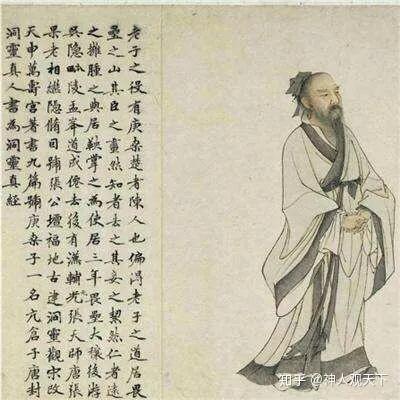 老子之役有庚桑楚者陳人也偏得老子之道居畏
壘之山其臣之畫然知者去之其妾之絜然仁者遠
之擁腫之與居鞅掌之為使居三年畏壘大穰後游
吳隱毗陵孟峯道成僊去後有漢輔光張天師唐張
果老相繼隱脩目號張公壇福地古建洞靈觀宋改
天申萬壽宮著書九篇號庚桑子一名亢倉子唐封
洞靈真人書為洞靈真經
知乎 @神人观天下